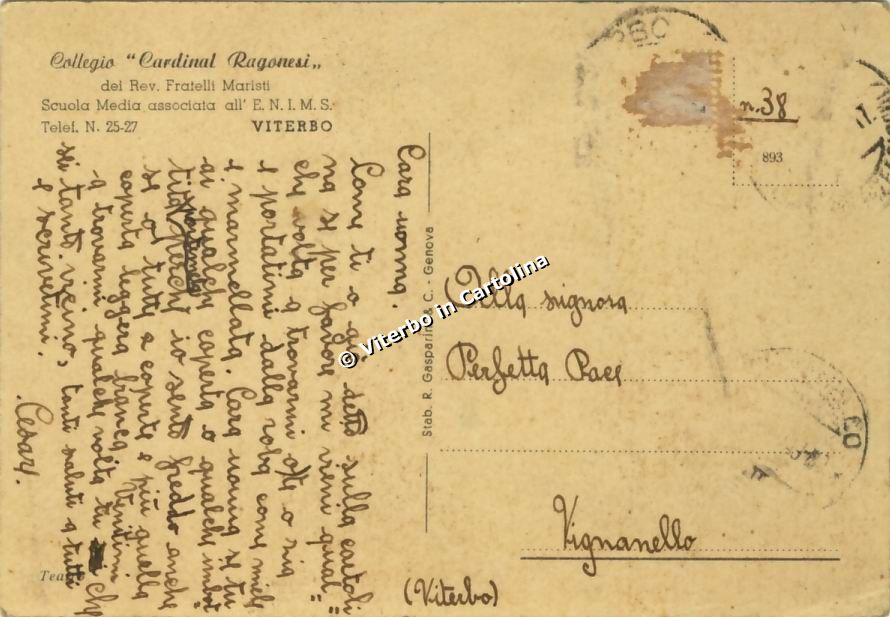 Collegio "Cardinal Ragonesi"
dei Rev. Fratelli Maristi
Scuola Media associata all' E.N.I.M.S.
Telef. N. 25-27 VITERBO
Cara nonna.
Come ti o già detto sulla cartoli
na se per favore mi vieni qual=
che volta a trovarmi o
e portatimi della roba come miele
e marmellata. Cara nonna se tu
ai qualche coperta o qualche imbot=
tita perchè io sento freddo anche
se o coperte e più quella
coperta leggera bianca. Venitimi
a trovarmi qualche volta tu che
sti tanto vicino, tanti saluti a tutti
e scrivetimi.
Cesare.
Teatro
Stab. R. Gasparini & C. - Genova
n. 38
893
Della signora
Perfetta Pace
Vignanello
(Viterbo)
© Viterbo in Cartolina